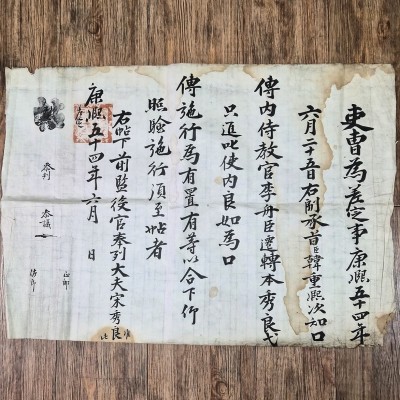 吏曹爲差定事康熙五十四年
六月二十五日右副承旨臣韓重熙次知口
傳內侍敎官李舟臣遷轉本秀良弋
只進此使內良如爲口
傳施行爲有置有等以合下仰
照驗施行須至帖者
右帖下前監役官奉列大夫宋秀良准此
康熙五十四年六月 日
參判 參議
正郞
佐郞